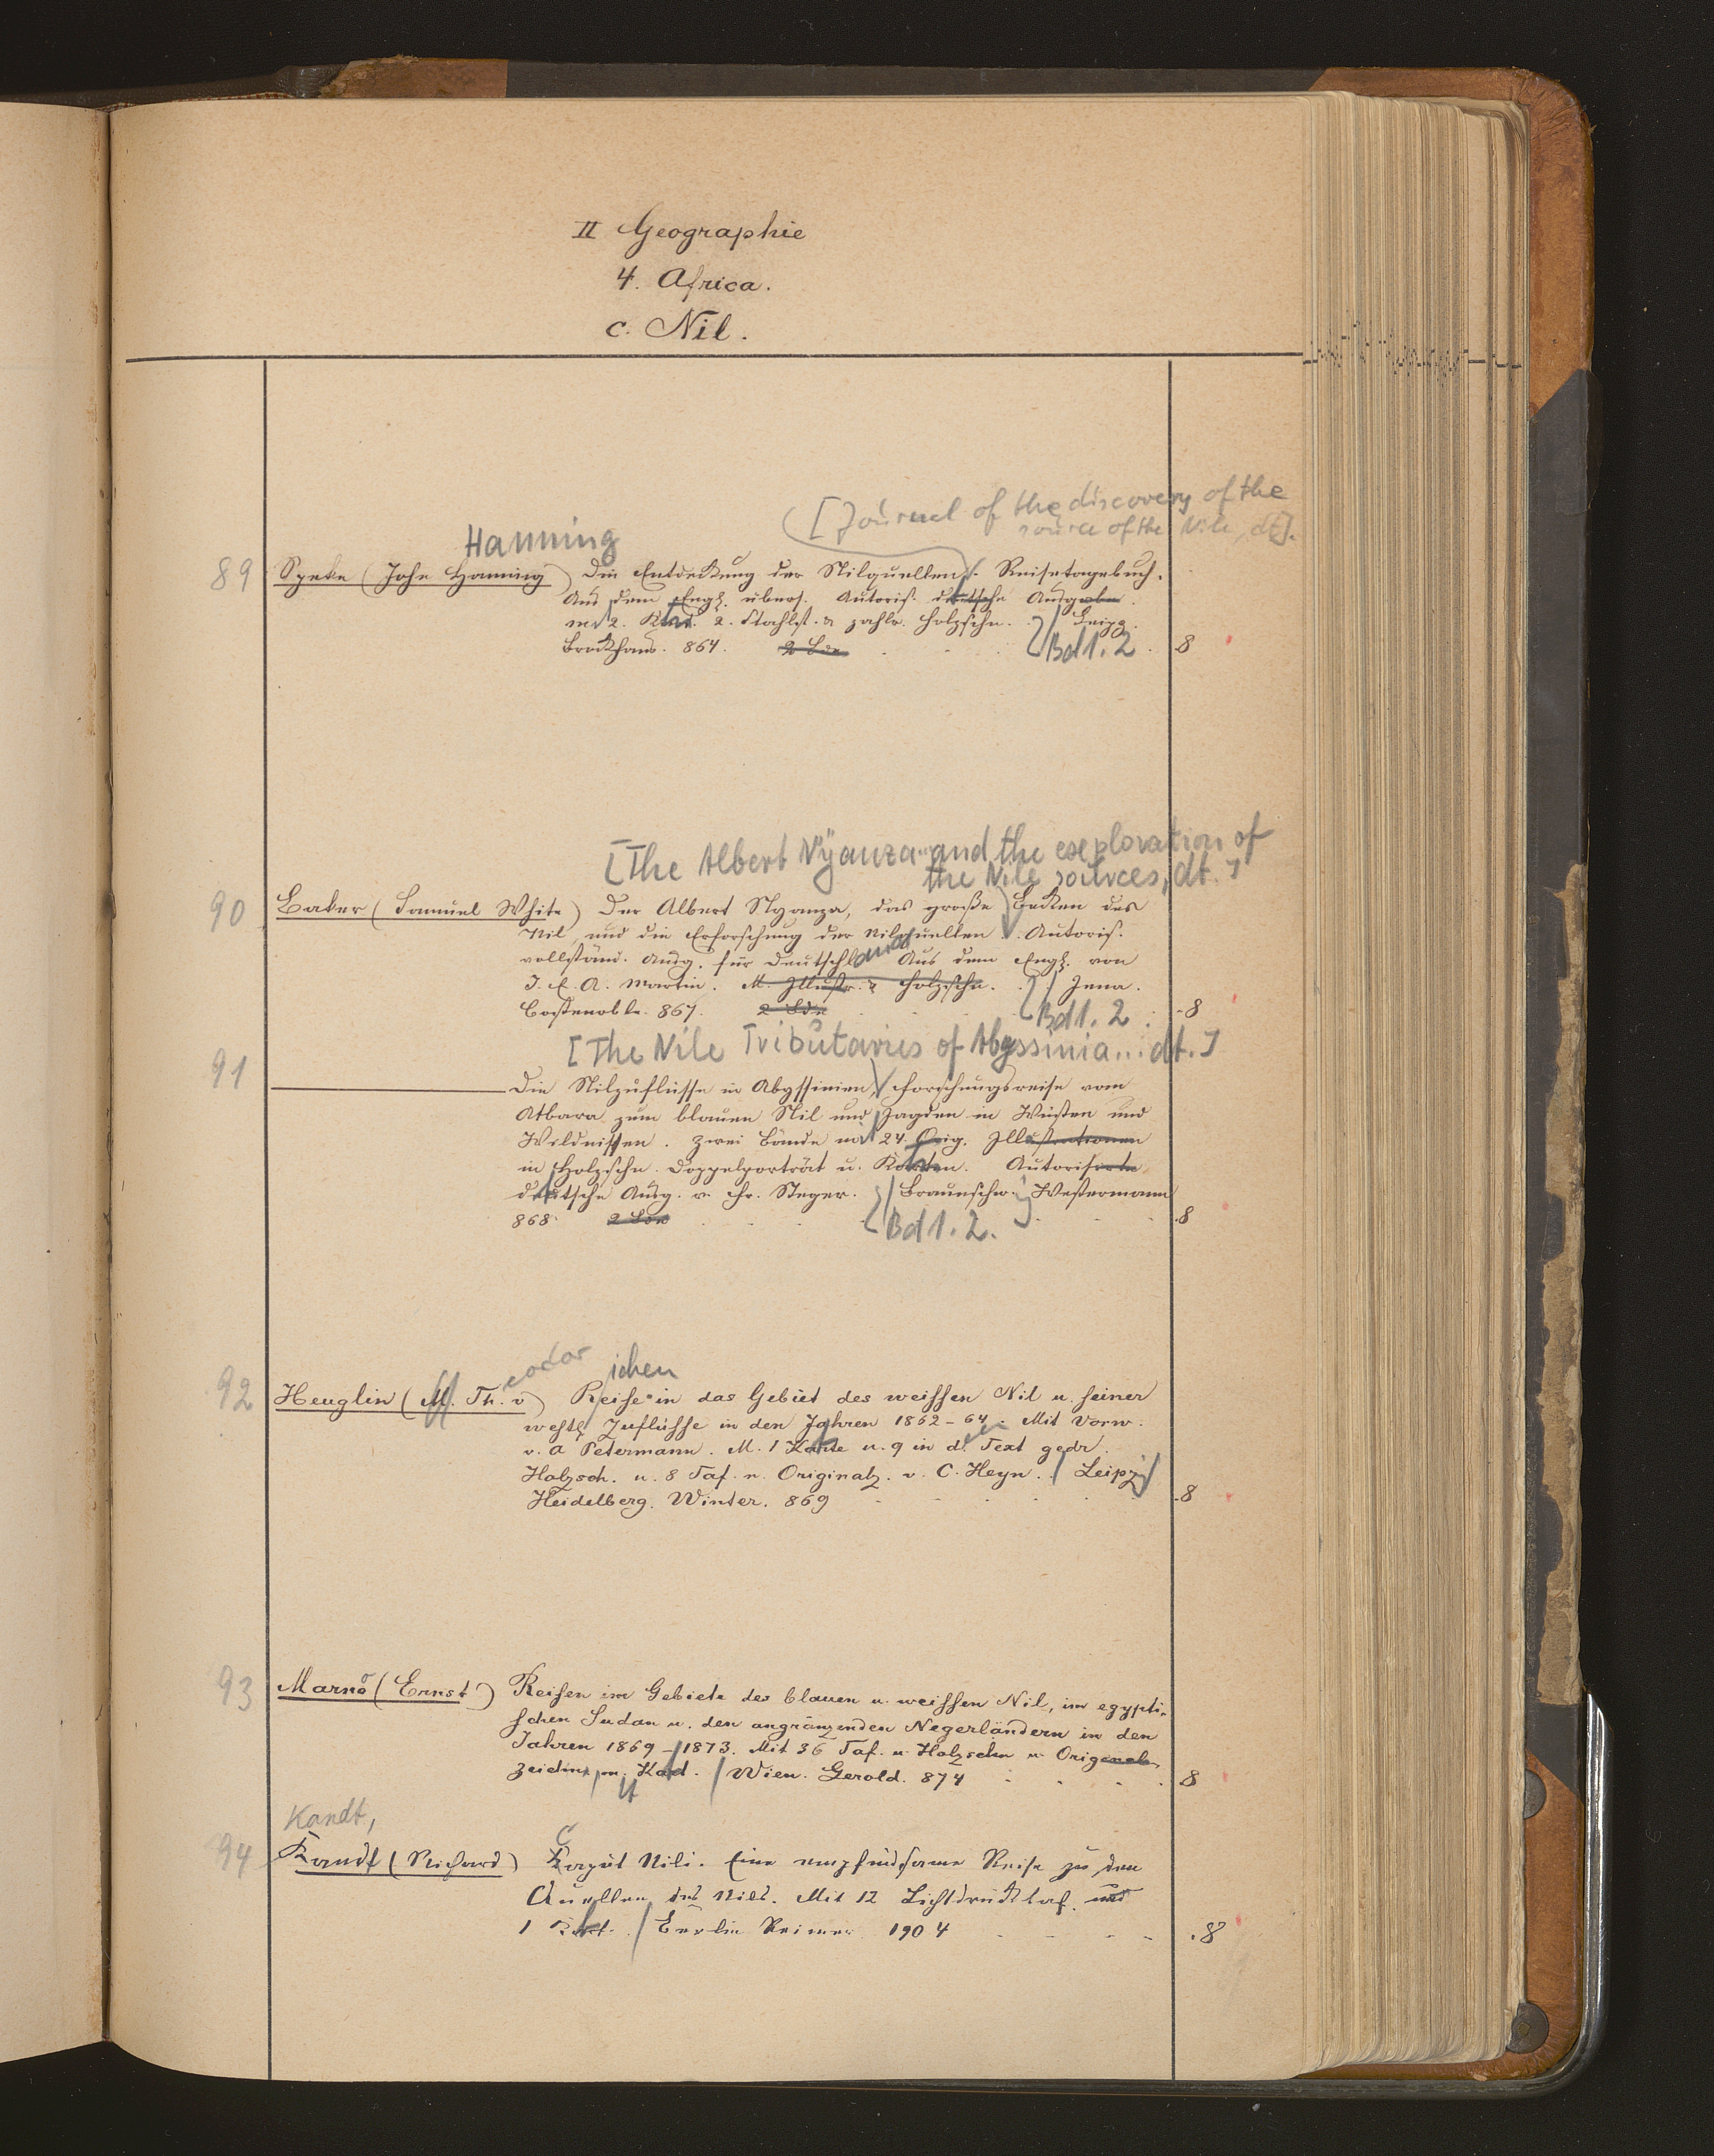 II Geographie
4. Africa.
c. Nil.
[Journal of the discovery of the
source of the Nile, dt].
Hanning
89 Speke (John Haning) Die Entdeckung der Nilquellen. Reisetagebuch.
Aus dem Engl. übers. Autoris. deutsche Ausgabe.
m. 2. Kart. 2. Stahlst. & zahlr. Holzschn. Leipz.
Brockhaus. 864. 2 Bde Bd 1. 2 8
[The Albert N'yanza and the exploration of
the Nile sources, dt.]
90 Baker (Samuel White) Der Albert Nyanza, das große Becken des
Nil, und die Erforschung der Nilquellen. Autoris.
vollständ. Ausg. für Deutschland Aus dem Engl. von
J. E. A. Martin. M. Illustr. & Holzschn. Jena.
Costenoble. 867. 2 Bde Bd 1. 2 8
[The Nile Tributaries of Abyssinia... dt.]
91 Die Nilzuflüsse in Abyssinien, Forschungsreise vom
Atbara zum blauen Nil und Jagden in Wüsten und
Wildnissen. Zwei Bände mit 24 Orig. Illustrationen
in Holzschn. Doppelporträt u. Karten. Autorisirte
deutsche Ausg. v. Fr. Steger. Braunschw. Westermann
868. 2 Bde Bd 1. 2. 8
eodor ichen
92 Heuglin (M. Th. v) Reise in das Gebiet des weissen Nil u. seiner
westl. Zuflüsse in den Jahren 1862-64. Mit Vorw.
v. A Petermann. M. 1 Karte u. 9 in d. Text gedr.
Holzsch. u. 8 Taf. n. Originalz. v. C. Heyn. Leipz
Heidelberg. Winter. 869 8
93 Marno (Ernst) Reisen im Gebiete des blauen u. weissen Nil, im egypti-
schen Sudan u. den angränzenden Negerländern in den
Jahren 1869-1873. Mit 36 Taf. u. Holzschn n. Original-
zeichn, m. Kart. Wien. Gerold. 874 8
Kandt,
94 Kandt (Richard) Caput Nili. Eine empfindsame Reise zu den
Quellen des Nils. Mit 12 Lichtdrucktaf. und
1 Kart. Berlin Reimer 1904 8